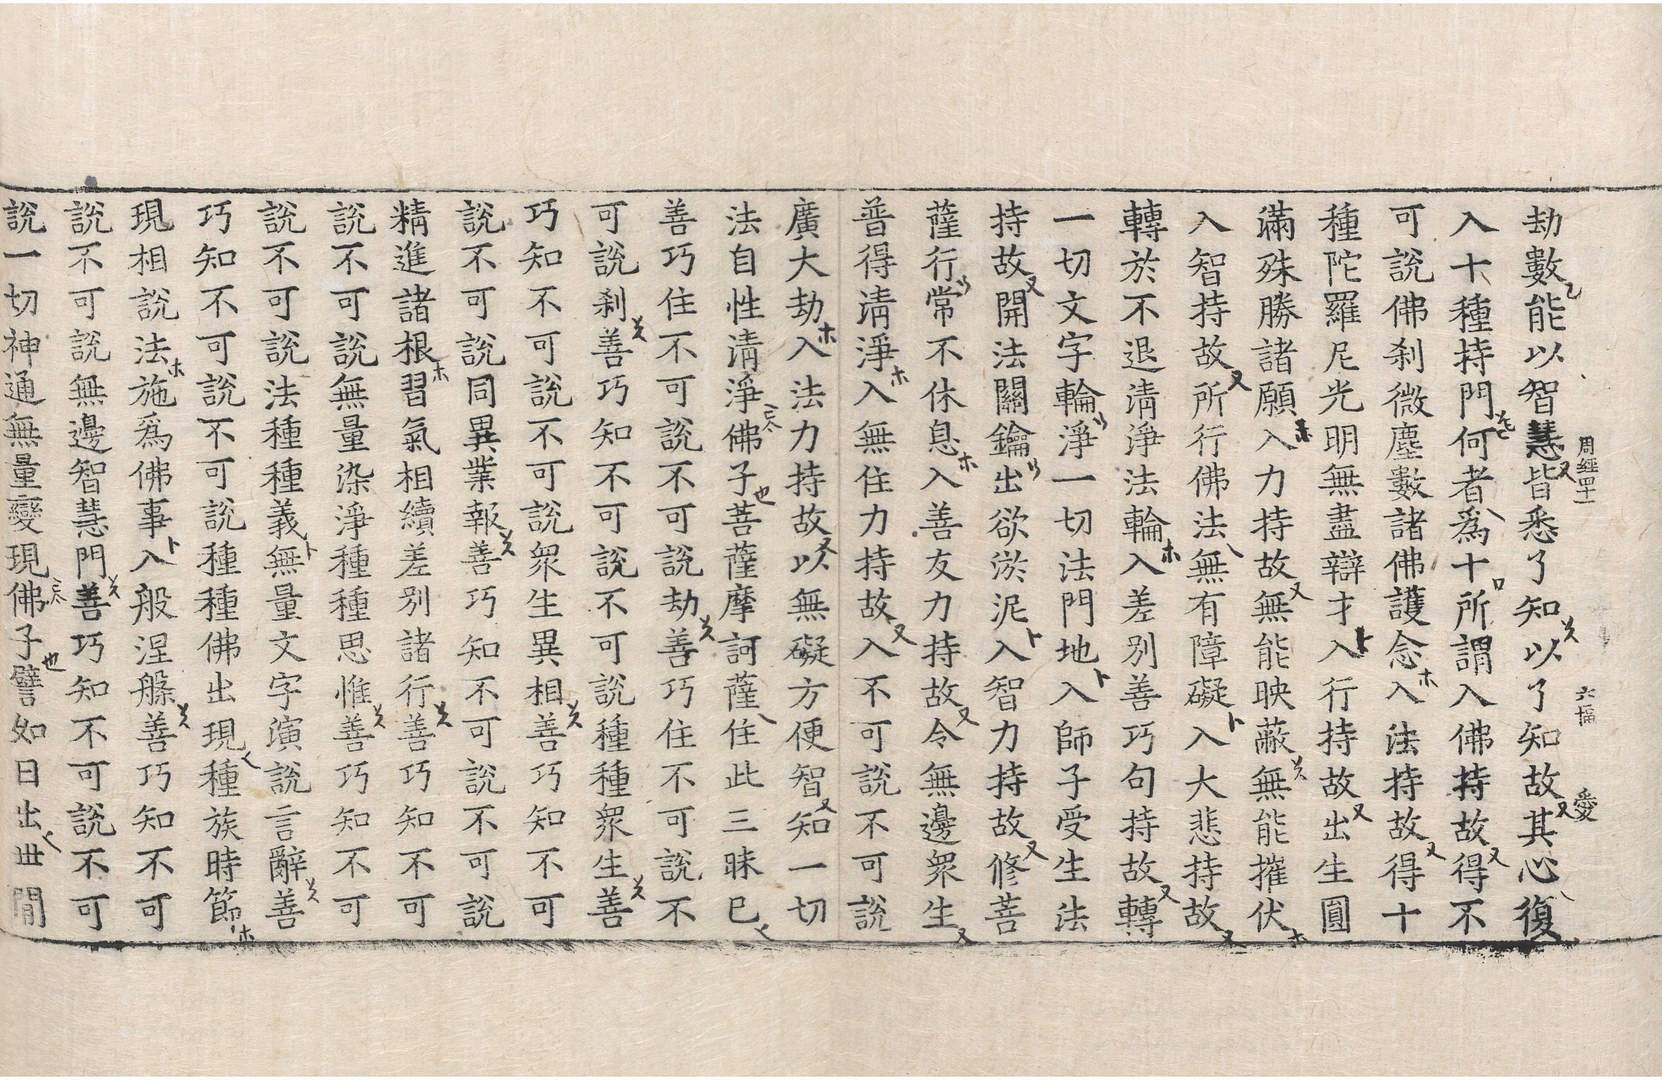 周經四十一 六幅 愛
劫數能以智慧皆悉了知以了知故其心復
入十種持門何者爲十所謂入佛持故得不
可說佛刹微塵數諸佛護念入法持故得十
種陀羅尼光明無盡辯才入行持故出生圓
滿殊勝諸願入力持故無能映蔽無能摧伏
入智持故所行佛法無有障礙入大悲持故
轉於不退淸淨法輪入差別善巧句持故轉
一切文字輪淨一切法門地入師子受生法
持故開法關鑰出欲淤泥入智力持故修菩
薩行常不休息入善友力持故令無邊衆生
普得淸淨入無住力持故入不可說不可說
廣大劫入法力持故以無礙方便智知一切
法自性淸淨佛子菩薩摩訶薩住此三昧已
善巧住不可說不可說劫善巧住不可說不
可說刹善巧知不可說不可說種種衆生善
巧知不可說不可說衆生異相善巧知不可
說不可說同異業報善巧知不可說不可說
精進諸根習氣相續差別諸行善巧知不可
說不可說無量染淨種種思惟善巧知不可
說不可說法種種義無量文字演說言辭善
巧知不可說不可說種種佛出現種族時節
現相說法施爲佛事入般涅槃善巧知不可
說不可說無邊智慧門善巧知不可說不可
說一切神通無量變現佛子譬如日出世閒